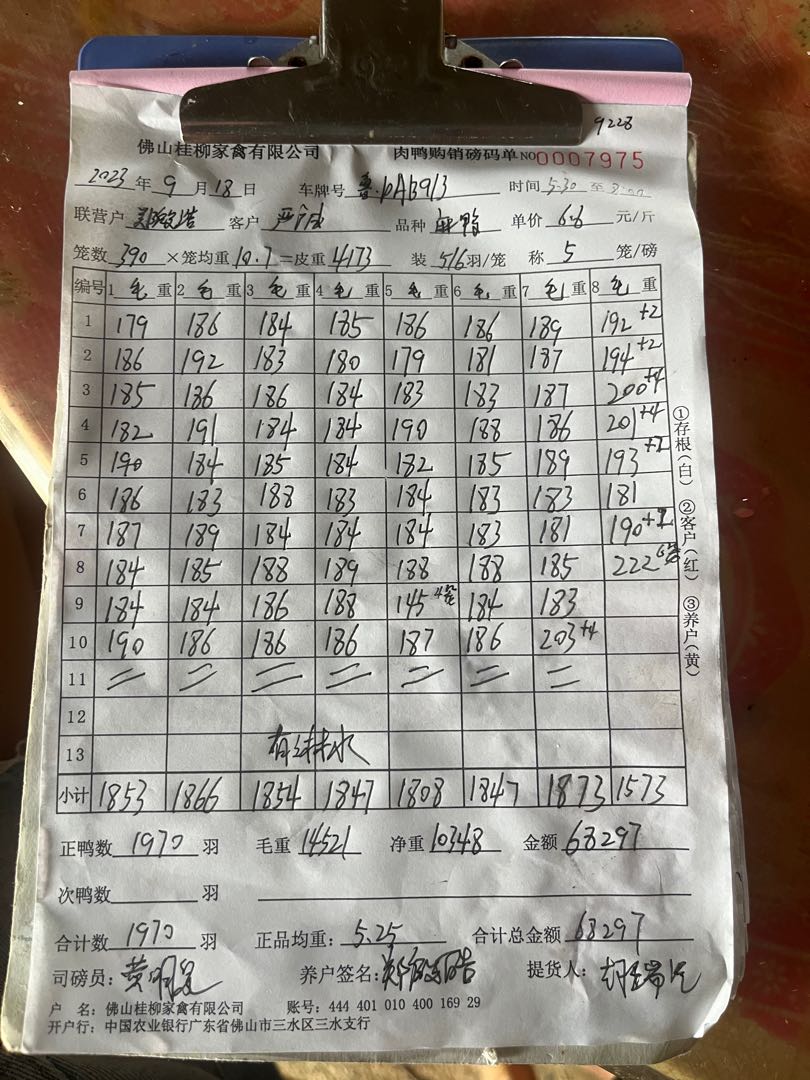 9228
佛山桂柳家禽有限公司 肉鸭购销磅码单 NO 0007975
2023 年 9 月 18 日 车牌号 鲁·DAB913 时间 5:30 至
联营户 客户 严广成 品种 麻鸭 单价 6.6 元/斤
笼数 390 ×笼均重 10.7 =皮重 4173 装 5/6 羽/笼 称 5 笼/磅
编号 1 毛 重 2 毛 重 3 毛 重 4 毛 重 5 毛 重 6 毛 重 7 毛 重 8 毛 重
1 179 186 184 185 186 186 189 192 +2
2 186 192 183 180 179 181 187 194 +2
3 185 186 186 184 183 183 187 200 +4
4 182 191 184 184 190 188 186 201 +4
5 190 184 185 184 182 185 189 193 +2
6 186 183 188 183 184 183 183 181
7 187 189 184 184 184 183 181 190 +2
8 184 185 188 189 188 188 185 222 6笼
9 184 184 186 188 145 4笼 184 183
10 190 186 186 186 187 186 203 +4
11
12
13 有淋水
小计 1853 1866 1854 1847 1808 1847 1873 1573
正鸭数 1970 羽 毛重 14521 净重 10348 金额 68297
次鸭数 羽
合计数 1970 羽 正品均重: 5.25 合计总金额 68297
司磅员: 黄明 养户签名: 提货人: 胡瑞
户 名: 佛山桂柳家禽有限公司 账号: 444 401 010 400 169 29
开户行: 中国农业银行广东省佛山市三水区三水支行
①存根(白) ②客户(红) ③养户(黄)